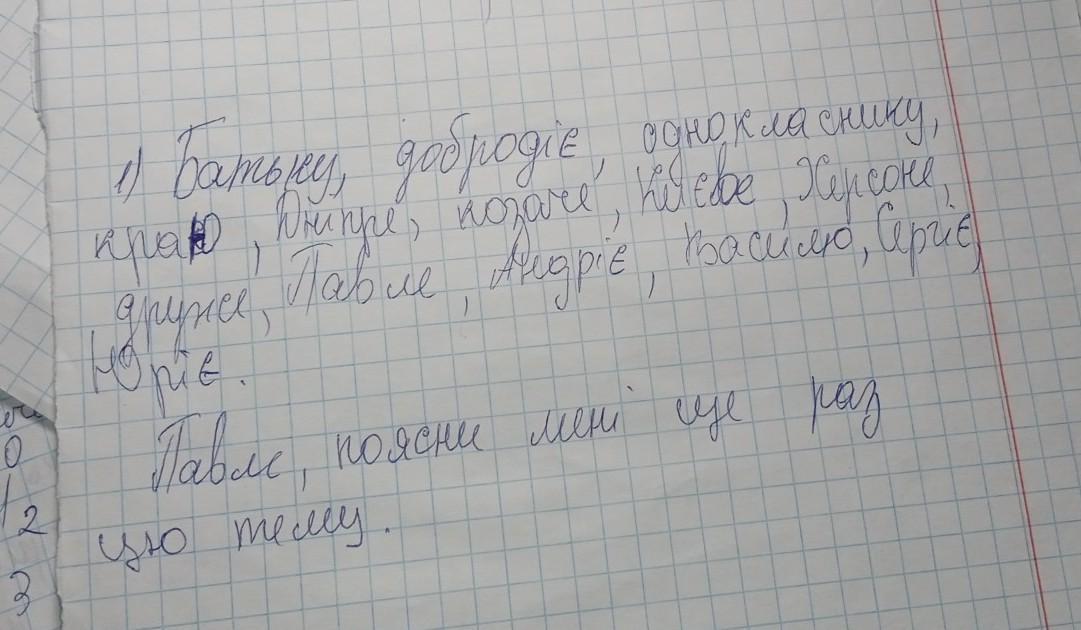 1) Батьку, добродіє, однокласнику,
краю, Дніпре, козаче, Києве, Херсоне,
друже, Павле, Андріє, Василю, Сергіє,
Юріє.
Павле, поясни мені ще раз
цю тему.
0
1
2
3